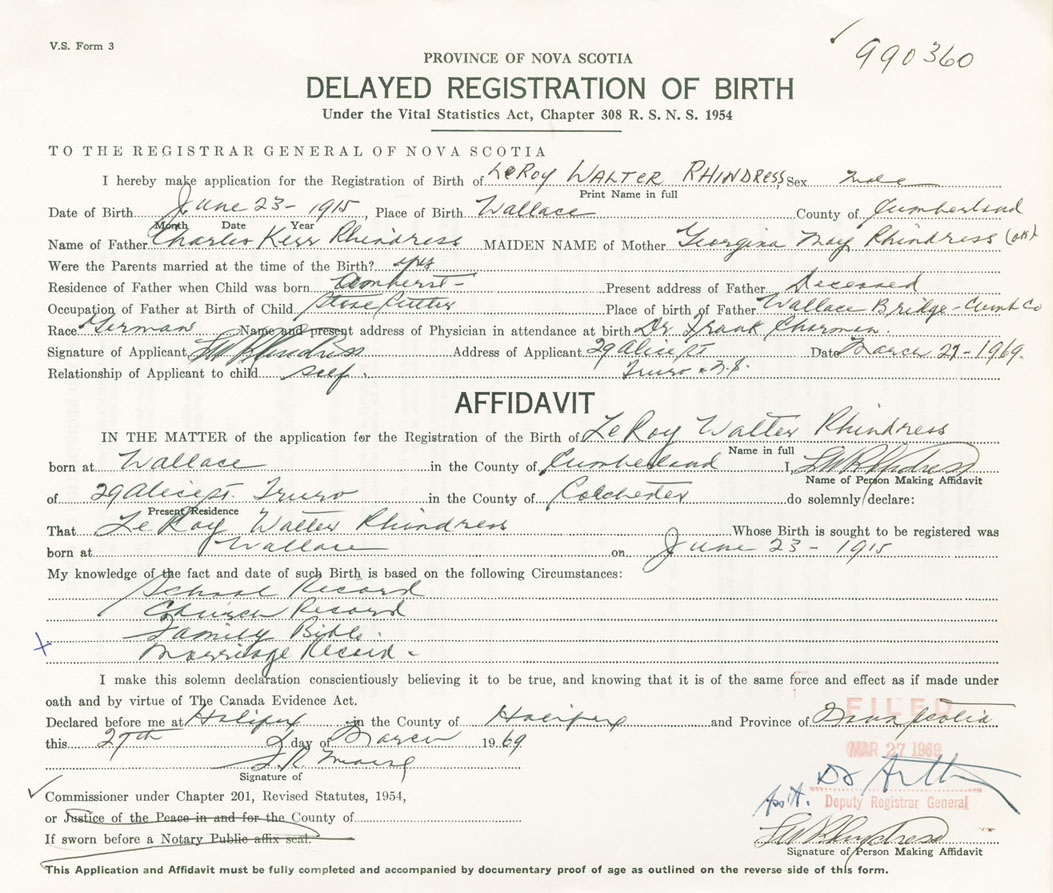 V.S. Form 3
990360
PROVINCE OF NOVA SCOTIA
DELAYED REGISTRATION OF BIRTH
Under the Vital Statistics Act, Chapter 308 R. S. N. S. 1954
TO THE REGISTRAR GENERAL OF NOVA SCOTIA
I hereby make application for the Registration of Birth of LeRoy WALTER RHINDRESS Sex male
Print Name in full
Date of Birth June 23 - 1915, Place of Birth Wallace County of Cumberland
Month Date Year
Name of Father Charles Kerr Rhindress MAIDEN NAME of Mother Georgina May Rhindress
Were the Parents married at the time of the Birth? yes
Residence of Father when Child was born Amherst - Present address of Father Deceased
Occupation of Father at Birth of Child Stone Cutter Place of birth of Father Wallace Bridge - Cumb Co
Race German Name and present address of Physician in attendance at birth Dr. Frank Charman.
Signature of Applicant LW Rhindress Address of Applicant 29 Alice St Date March 27 - 1969.
Relationship of Applicant to child self. Truro N.S.
AFFIDAVIT
IN THE MATTER of the application for the Registration of the Birth of LeRoy Walter Rhindress
Name in full
born at Wallace in the County of Cumberland I, LW Rhindress
Name of Person Making Affidavit
of 29 Alice St. Truro in the County of Colchester do solemnly declare:
Present Residence
That LeRoy Walter Rhindress Whose Birth is sought to be registered was
born at Wallace on June 23 - 1915
My knowledge of the fact and date of such Birth is based on the following Circumstances:
School Record
Church Record
Family Bible.
Marriage Record -
I make this solemn declaration conscientiously believing it to be true, and knowing that it is of the same force and effect as if made under
oath and by virtue of The Canada Evidence Act.
Declared before me at Halifax in the County of Halifax and Province of Nova Scotia
FILED
this 27th day of March 1969
MAR 27 1969
Signature of
Commissioner under Chapter 201, Revised Statutes, 1954,
Ass't. Deputy Registrar General
or Justice of the Peace in and for the County of
LW Rhindress
If sworn before a Notary Public affix seal.
Signature of Person Making Affidavit
This Application and Affidavit must be fully completed and accompanied by documentary proof of age as outlined on the reverse side of this form.